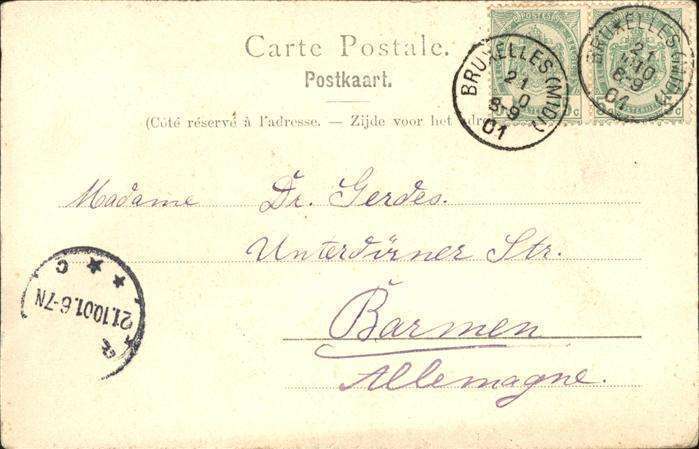 Carte Postale.
Postkaart.
(Côté réservé à l'adresse. — Zijde voor het
BRUXELLES (MIDI)
21
10
8-9
01
BRUXELLES (MIDI)
21
10
8-9
01
Madame Dr. Gerdes.
Unterdörner Str.
Barmen
Allemagne.
21.10.01.6-7N
C